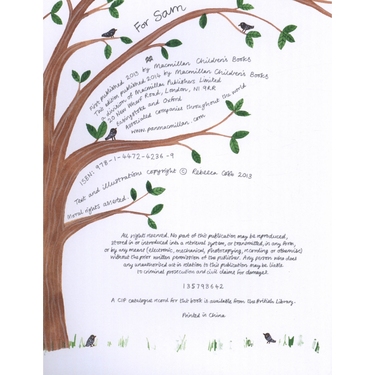 For Sam
First published 2013 by Macmillan Children's Books
This edition published 2014 by Macmillan Children's Books
a division of Macmillan Publishers Limited
20 New Wharf Road, London, N1 9RR
Basingstoke and Oxford
Associated companies throughout the world
www.panmacmillan.com
ISBN: 978-1-4472-4236-9
Text and illustrations copyright © Rebecca Cobb 2013
Moral rights asserted.
All rights reserved. No part of this publication may be reproduced,
stored in or introduced into a retrieval system, or transmitted, in any form,
or by any means (electronic, mechanical, photocopying, recording or otherwise)
without the prior written permission of the publisher. Any person who does
any unauthorised act in relation to this publication may be liable
to criminal prosecution and civil claims for damages.
135798642
A CIP catalogue record for this book is available from the British Library.
Printed in China